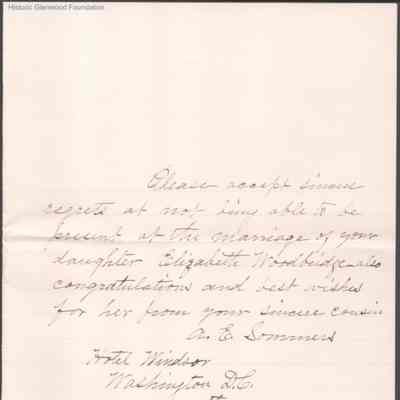 Historic Glenwood Foundation
Please accept sincere
regrets at not being able to be
present at the marriage of your
daughter Elizabeth Woodbridge also
congratulations and best wishes
for her from your sincere cousin
A. E. Sommers
Hotel Windsor
Washington D.C.